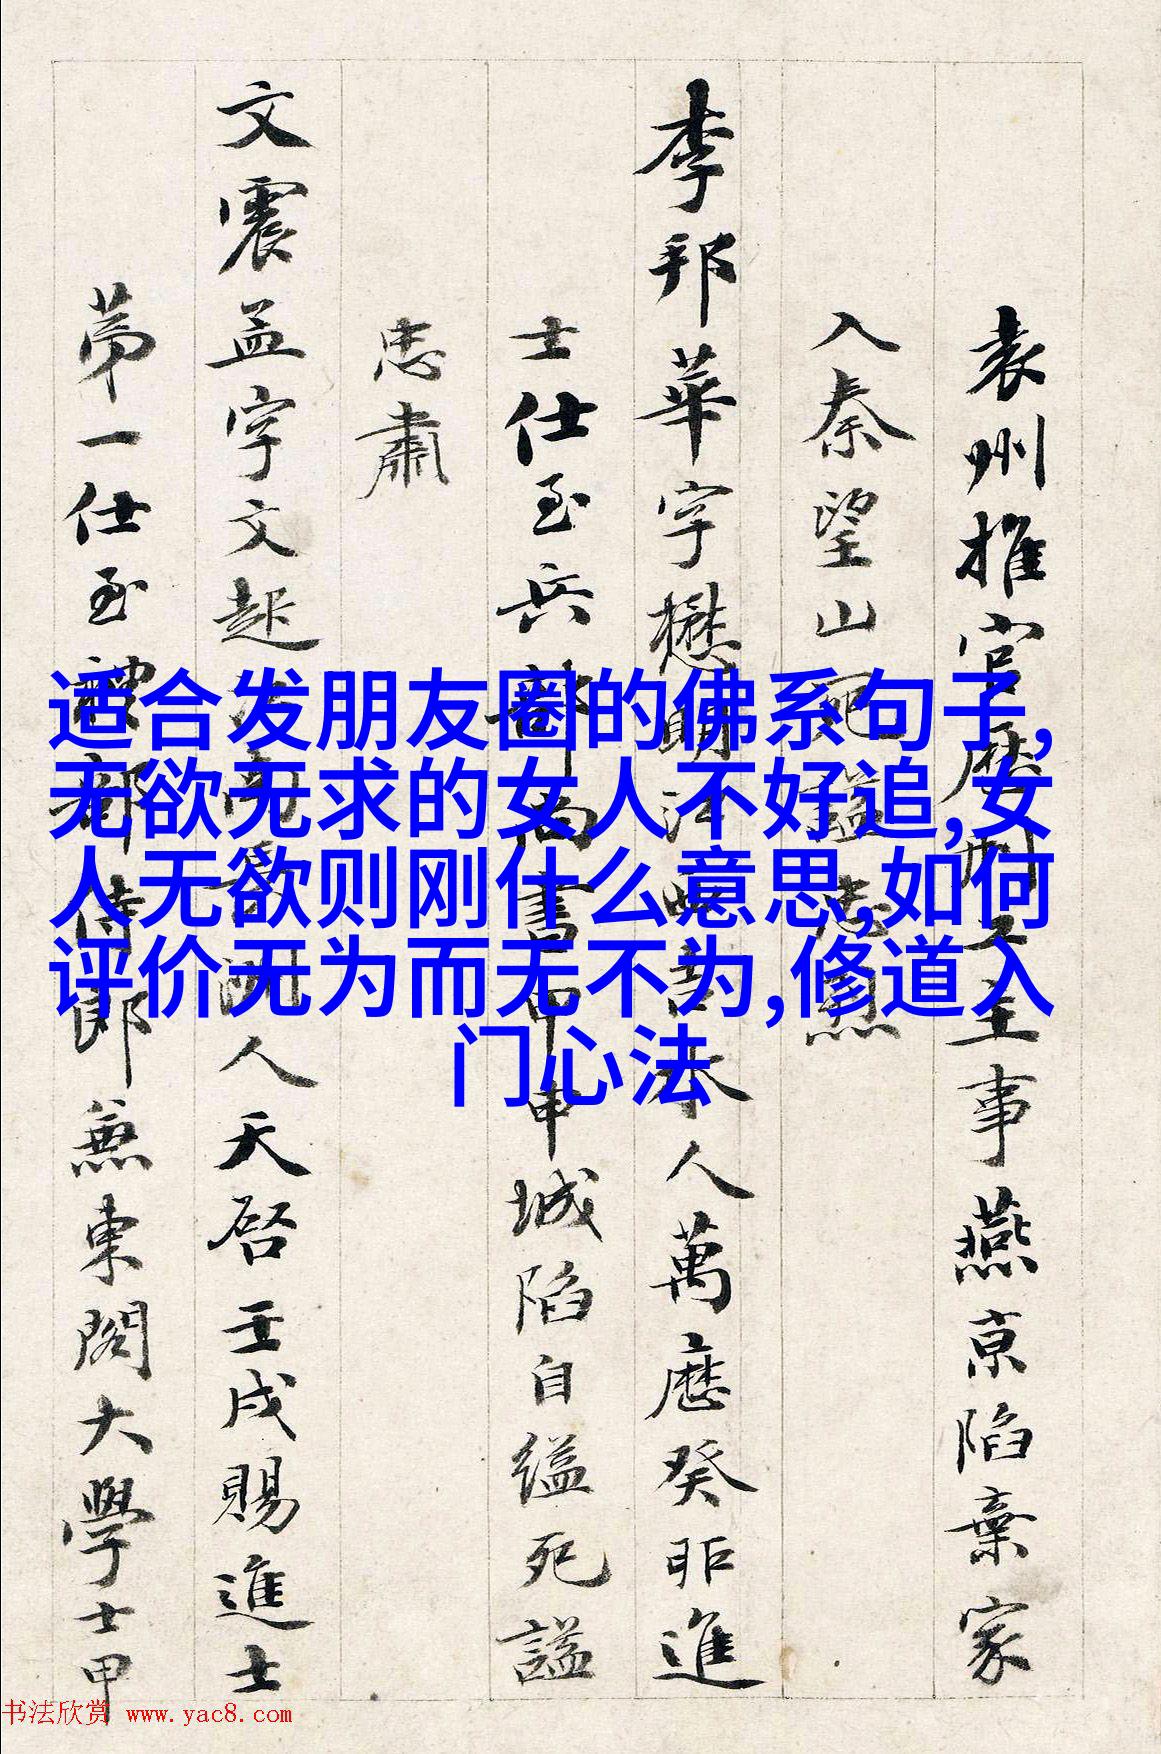 袁州推官歷刑工主事燕京陷棄家
入秦望山死謚忠烈
李邦華字懋明江吉水人萬曆癸卯進
士仕至兵部尚書甲申城陷自縊死謚
忠肅
文震孟字文起人天啓壬戌賜進士
第一仕至部侍郎兼東閣大學士甲
适合发朋友圈的佛系句子,
无欲无求的女人不好追,女
人无欲则刚什么意思,如何
评价无为而无不为,修道入
门心法
书法欣赏 www.yac8.com